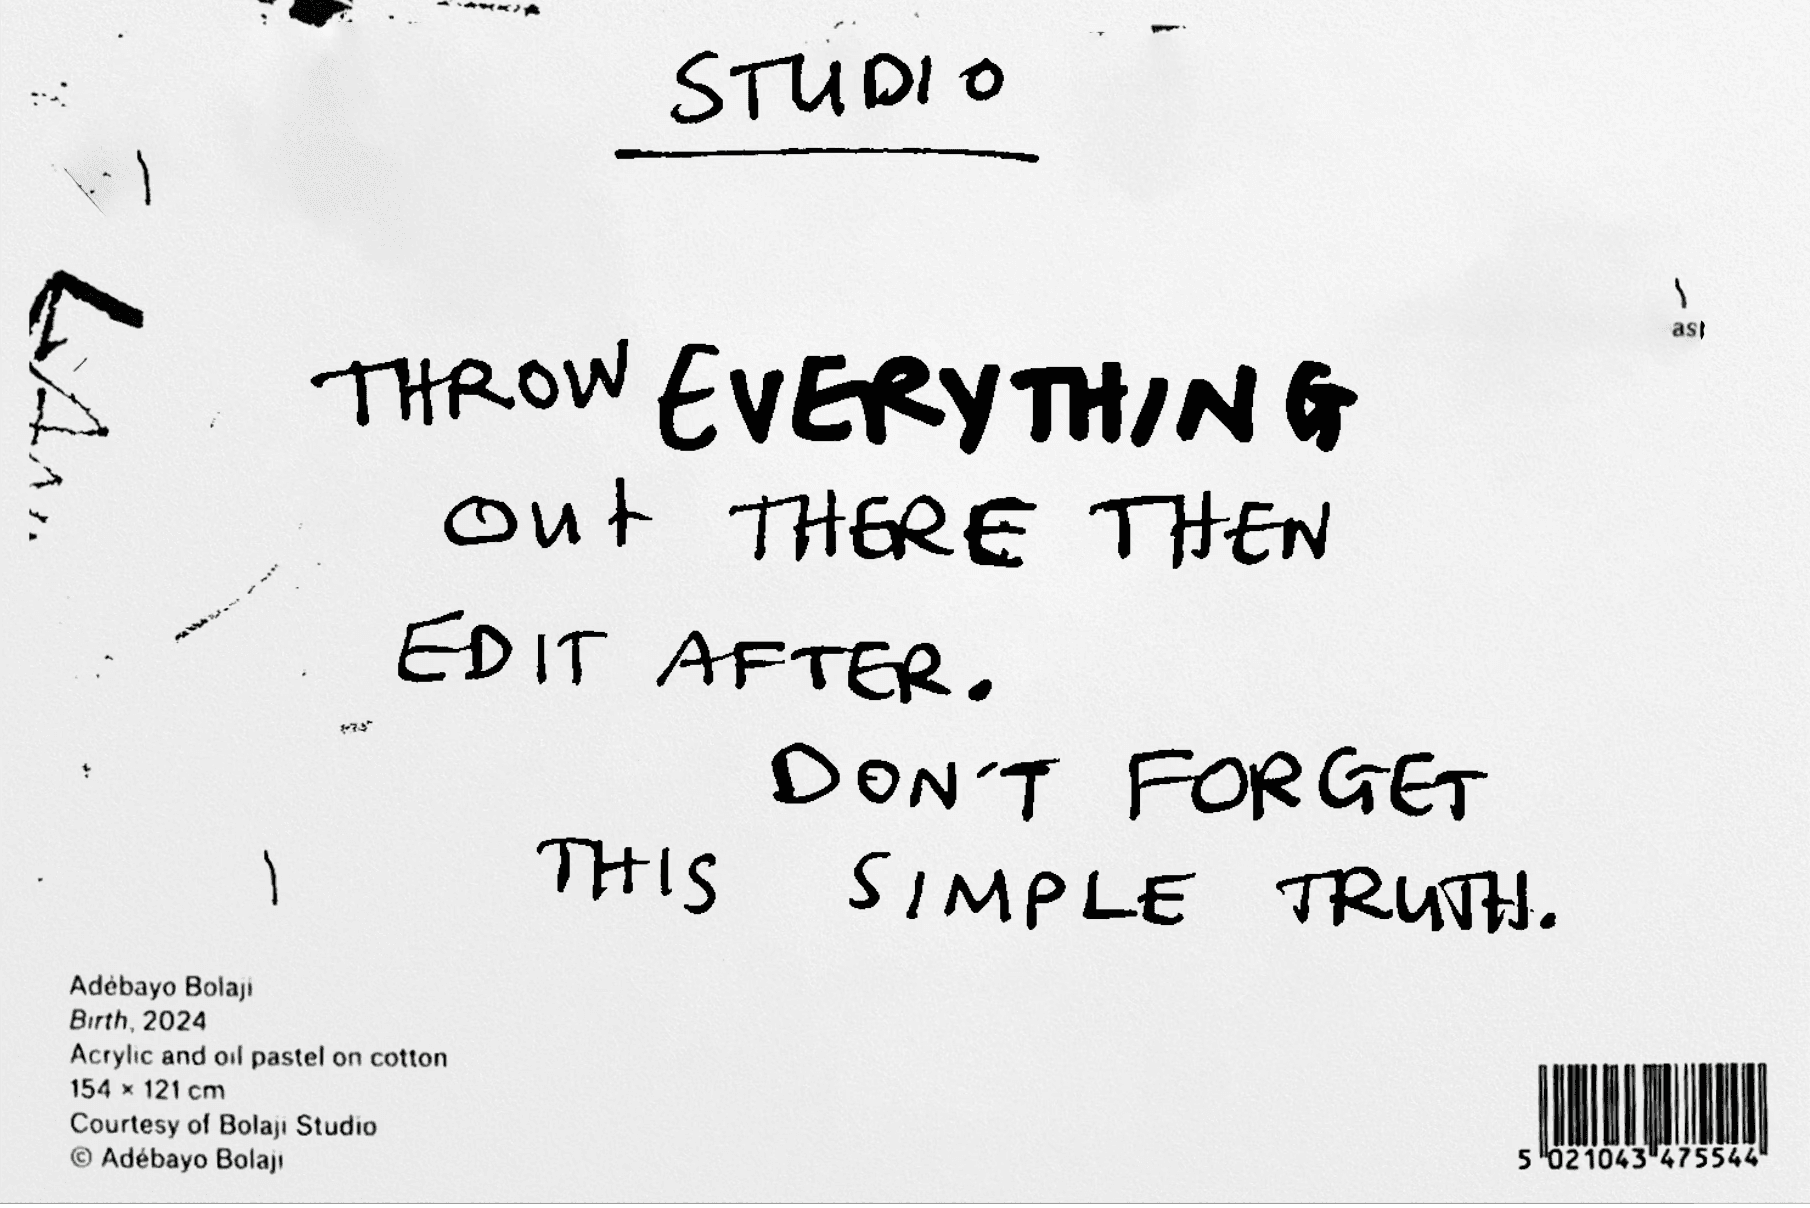 STUDIO
THROW EVERYTHING
OUt THERE THEN
EDIT AFTER.
DON'T FORGET
THIS SIMPLE TRUTH.
Adébayo Bolaji
Birth, 2024
Acrylic and oil pastel on cotton
154 × 121 cm
Courtesy of Bolaji Studio
© Adébayo Bolaji
5 021043 475544